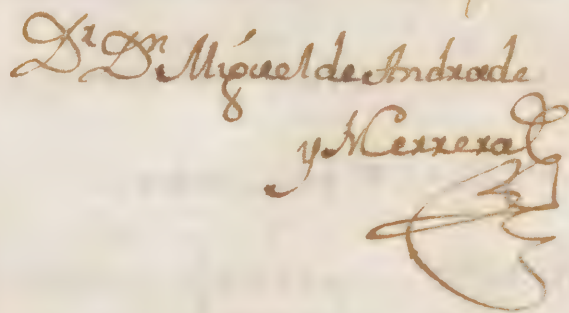 Dr. Dn. Miguel de Andrade
y Herrera